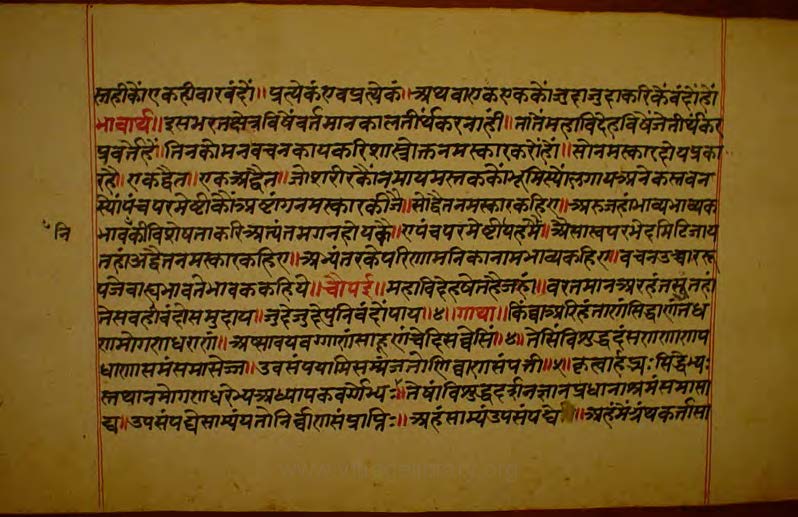 सहीकौं एकहीवार वंदौं ॥ प्रत्येकं एव प्रत्येकं ॥ अथवा एक एककौं जुदा जुदा करिकैं वंदौं हौं
भावार्थ ॥ इस भरतक्षेत्रविषैं वर्तमानकाल तीर्थंकर नाही ॥ तातैं महाविदेहविषैं जे तीर्थंकर
प्रवर्तै हैं ॥ तिनकौ मनवचनकायकरि शास्त्रोक्त नमस्कार करौं हौं ॥ सो नमस्कार दोय प्रका
रहै ॥ एक द्वैत ॥ एक अद्वैत ॥ जो शरीरकौं नमाय मस्तककौं भूमिस्यौं लगाय अनेक स्तवन
स्यौं पंचपरमेष्टीकौं अष्टांग नमस्कार कीजै सो द्वैत नमस्कार कहिए ॥ अरु जहां भाव्यभावक
भावकी विशेषताकरि अत्यंत मगन होयकै ॥ ए पंचपरमेष्टी एहमैं ॥ असा स्वपरभेद मिटि जाय
नि
तहां अद्वैत नमस्कार कहिए ॥ अभ्यंतरके परिणामनिका नाम भाव्य कहिए ॥ वचन उच्चाररू
प जे बाह्यभाव ते भावक कहिये ॥ चौपई ॥ महाविदेहषेत है जहां ॥ वरतमान अरहंत सु तहां
ते सब ही वंदौ समुदाय ॥ जुदे जुदे पुनि वंदौं पाय ॥ ४ ॥ गाथा ॥ किच्चा अरिहंताणं सिद्धाणं तध
णमो गणधराणं ॥ अप्सावयवग्गाणं साहूणं चेदि सव्वेसिं ॥ ४ ॥ तेसिं विशुद्धदंसणणाणप
धाणासमं समासेज्जा ॥ उवसंपयामि सम्मं जत्तो णिव्वाणसंपत्ती ॥ ५ ॥ कृत्वार्हद्भ्यः सिद्धेभ्यः
स्तथा नमो गणधरेभ्य अध्यापकवर्गेभ्यः ॥ तेषां विशुद्धदर्शनज्ञानप्रधानाश्रमं समासा
द्य ॥ उपसंपद्ये साम्यं यतो निर्वाणसंप्राप्तिः ॥ अहं साम्यं उपसंपद्ये ॥ अहं मैं ग्रंथकर्त्ता सा